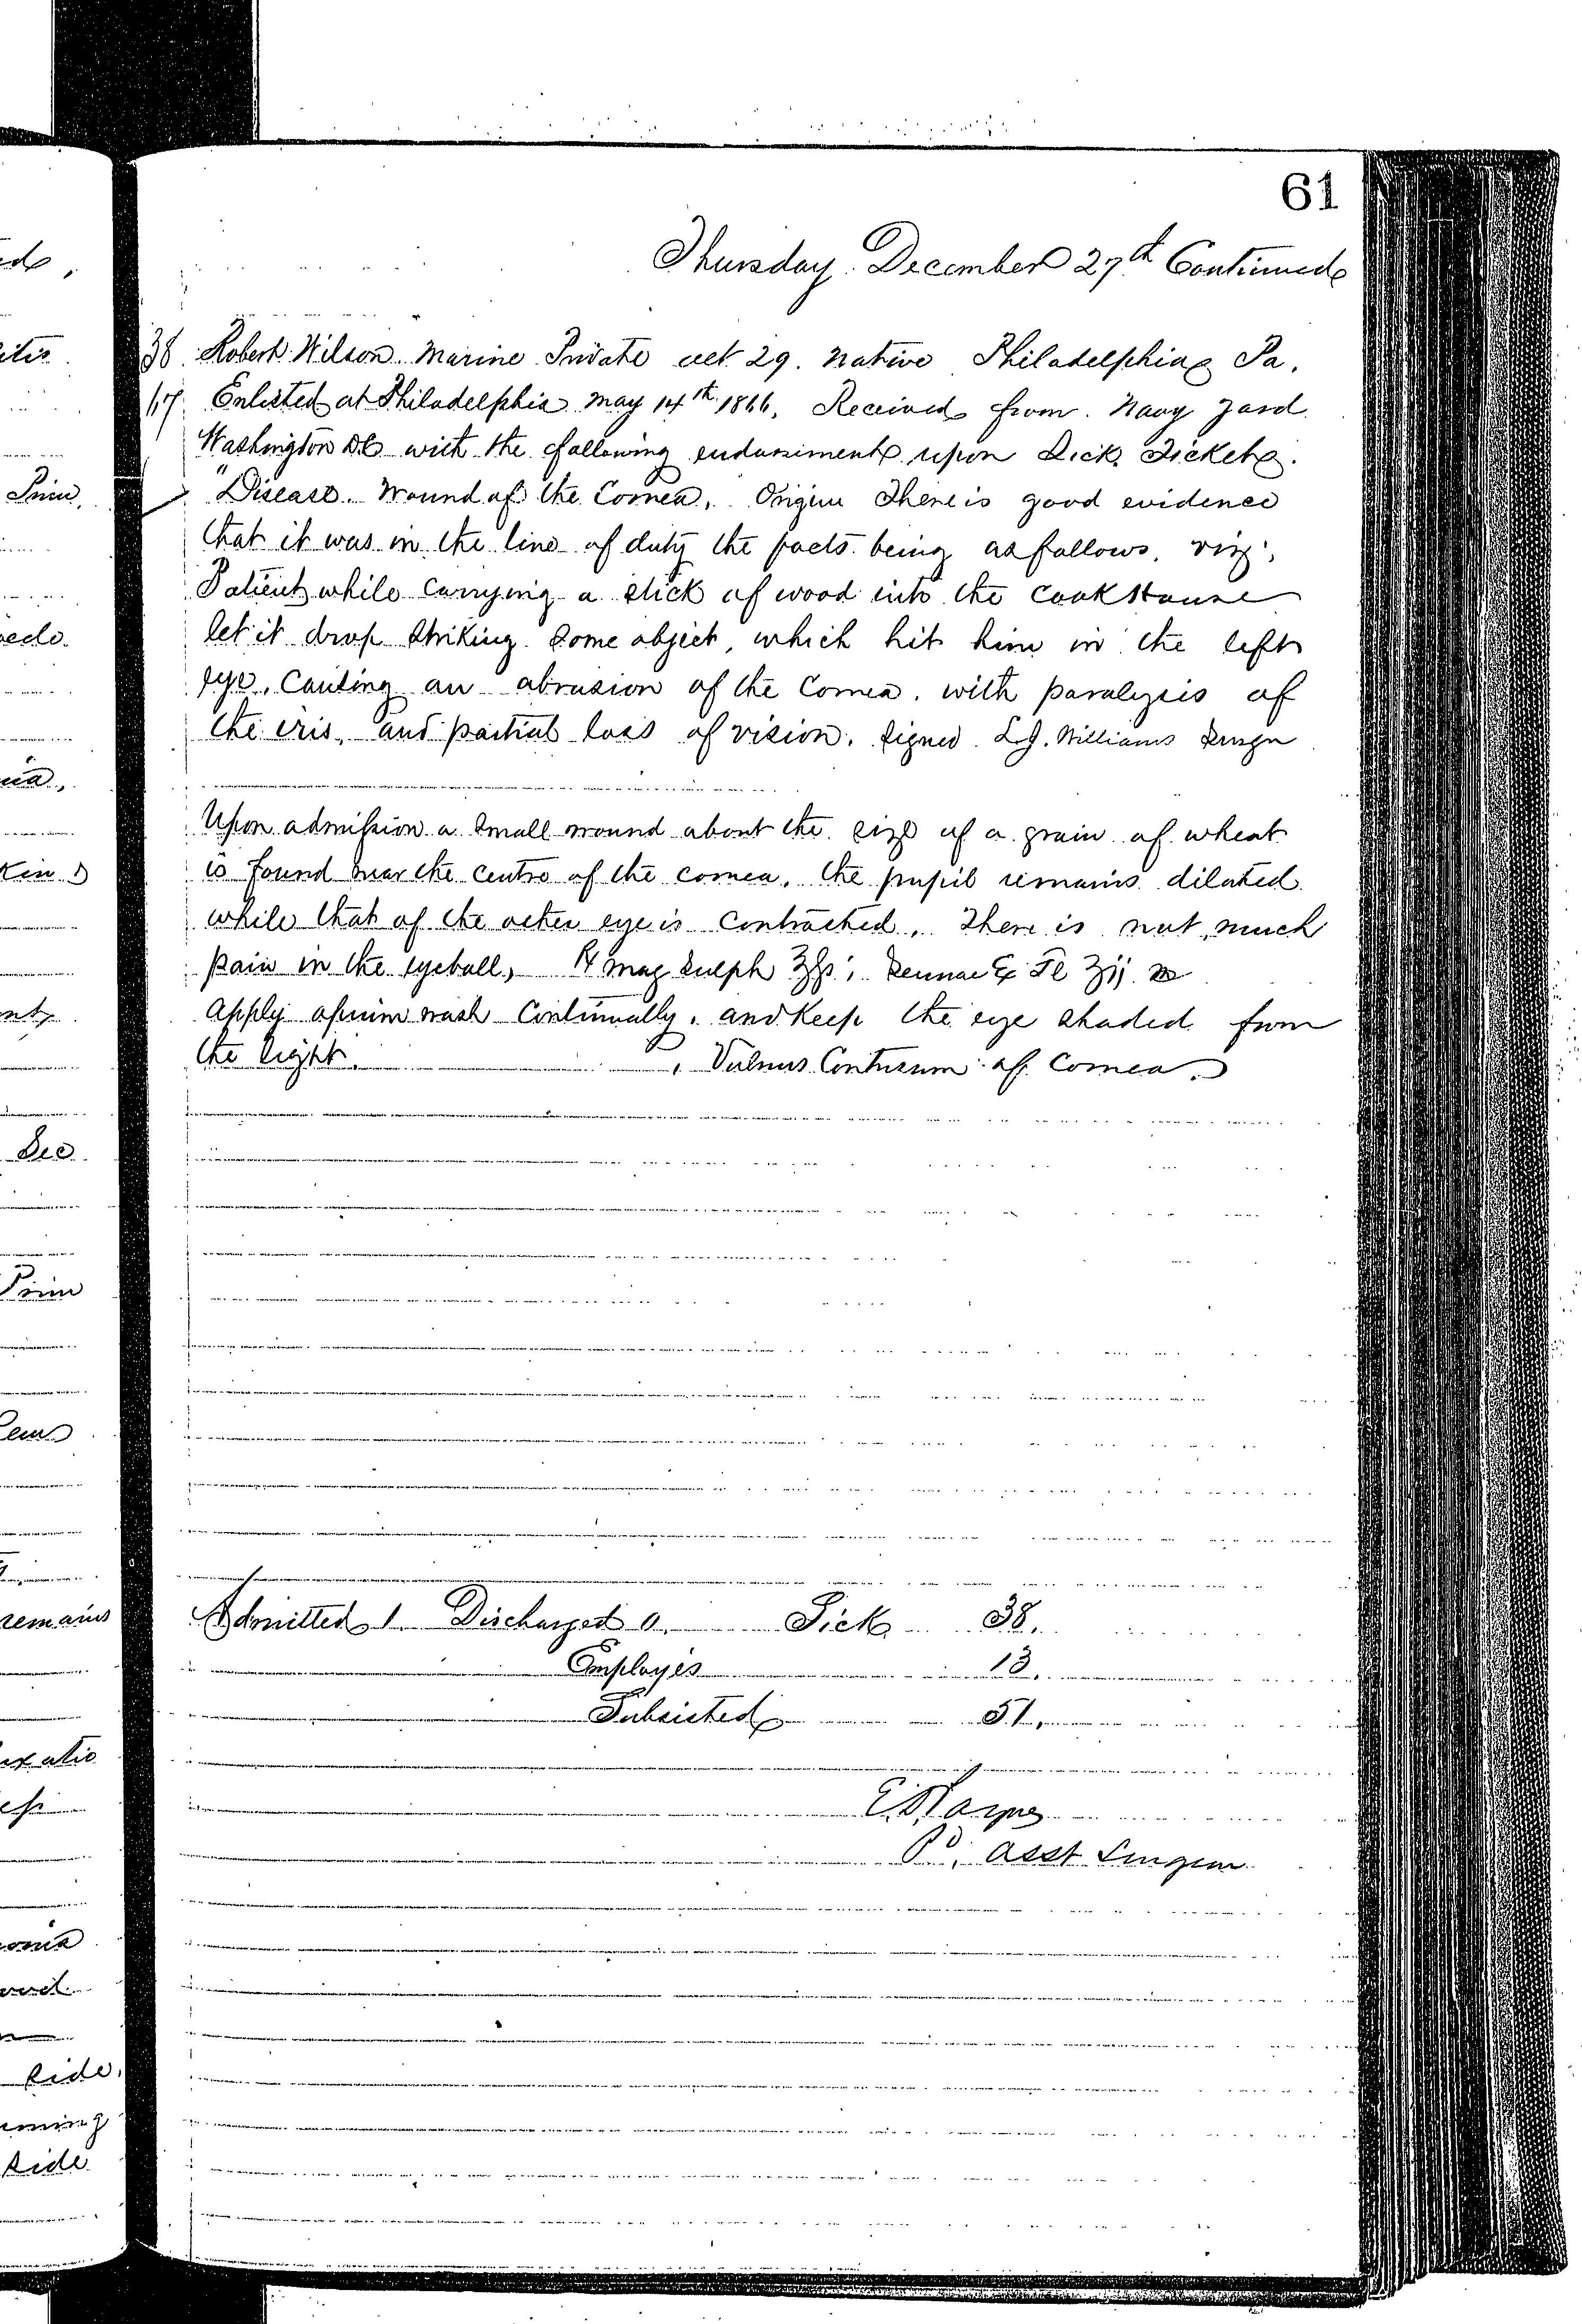 61
Thursday December 27th Continued
38 Robert Wilson Marine Private aet 29. native Philadelphia Pa.
67 Enlisted at Philadelphia May 14th 1866. Received from Navy Yard
Washington DC with the following endorsiment upon Sick Ticket.
"Disease. Wound of the Cornea, Origin There is good evidence
that it was in the line of duty the facts being as follows, viz;
Patient while carrying a stick of wood into the cookhouse
let it drop striking some object, which hit him in the left
eye, causing an abrasion of the Cornea, with paralysis of
the iris, and partial loss of vision. Signed Williams Surgn
Upon admission a small wound about the size of a grain of wheat
is found near the centre of the cornea, the pupil remains dilated
while that of the other eye is contracted. There is not much
pain in the eyeball, ℞ mag sulph ℥ss; Sennae Ex Fl ʒij
apply opium wash continually, and keep the eye shaded from
the light. , Vulnus Contusum of Cornea.
Admitted 1. Discharged 0. Sick 38.
Employés 13.
Subsisted 51.
Pd. Asst Surgeon
ed,
itis
Prim,
ia,
kin
nt,
Dec
Prim
remains
uxatio
onia
side,
side